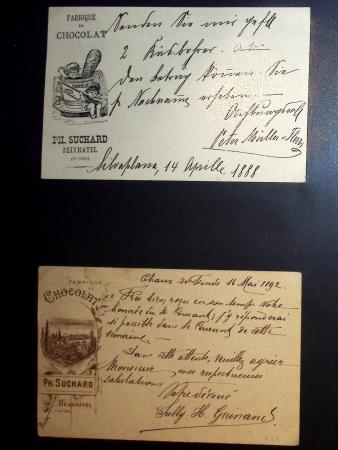 FABRIQUE
DE
CHOCOLAT
PH. SUCHARD
NEUCHATEL
(SUISSE)
Senden Sie mir gefll
2
den betrag können Sie
p Nachname erheben
Achtungsvoll
Peter Müller
Silvaplana, 14 Aprille 1888
FABRIQUE
DE
CHOCOLAT
PH. SUCHARD
NEUCHÂTEL
Chaux de Fonds 16 Mai 1892
Très bien reçu en son temps votre
honorée du Courant, j'y répondrai
si possible dans le Courant de cette
semaine.
Dans cette attente, veuillez agréer
Monsieur mes respectueuses
salutations
Votre dévoué
H. Guinand